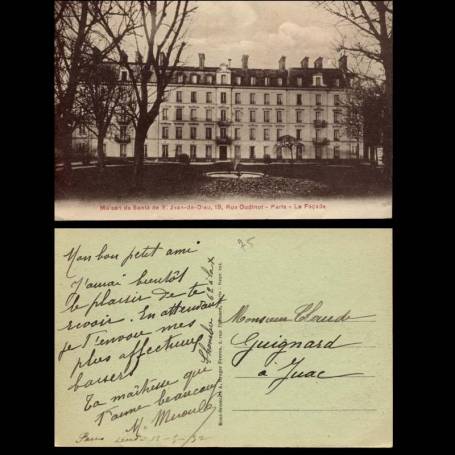 Maison de Santé de St Jean-de-Dieu, 19, Rue Oudinot - Paris - La Façade
Mon bon petit ami
J'aurai bientôt
le plaisir de te
revoir. En attendant
je t'envoie mes
plus affectueux
baisers
Ta maîtresse que
t'aime beaucoup
M.
Paris
75
Monsieur Claude
Guignard
à Juac